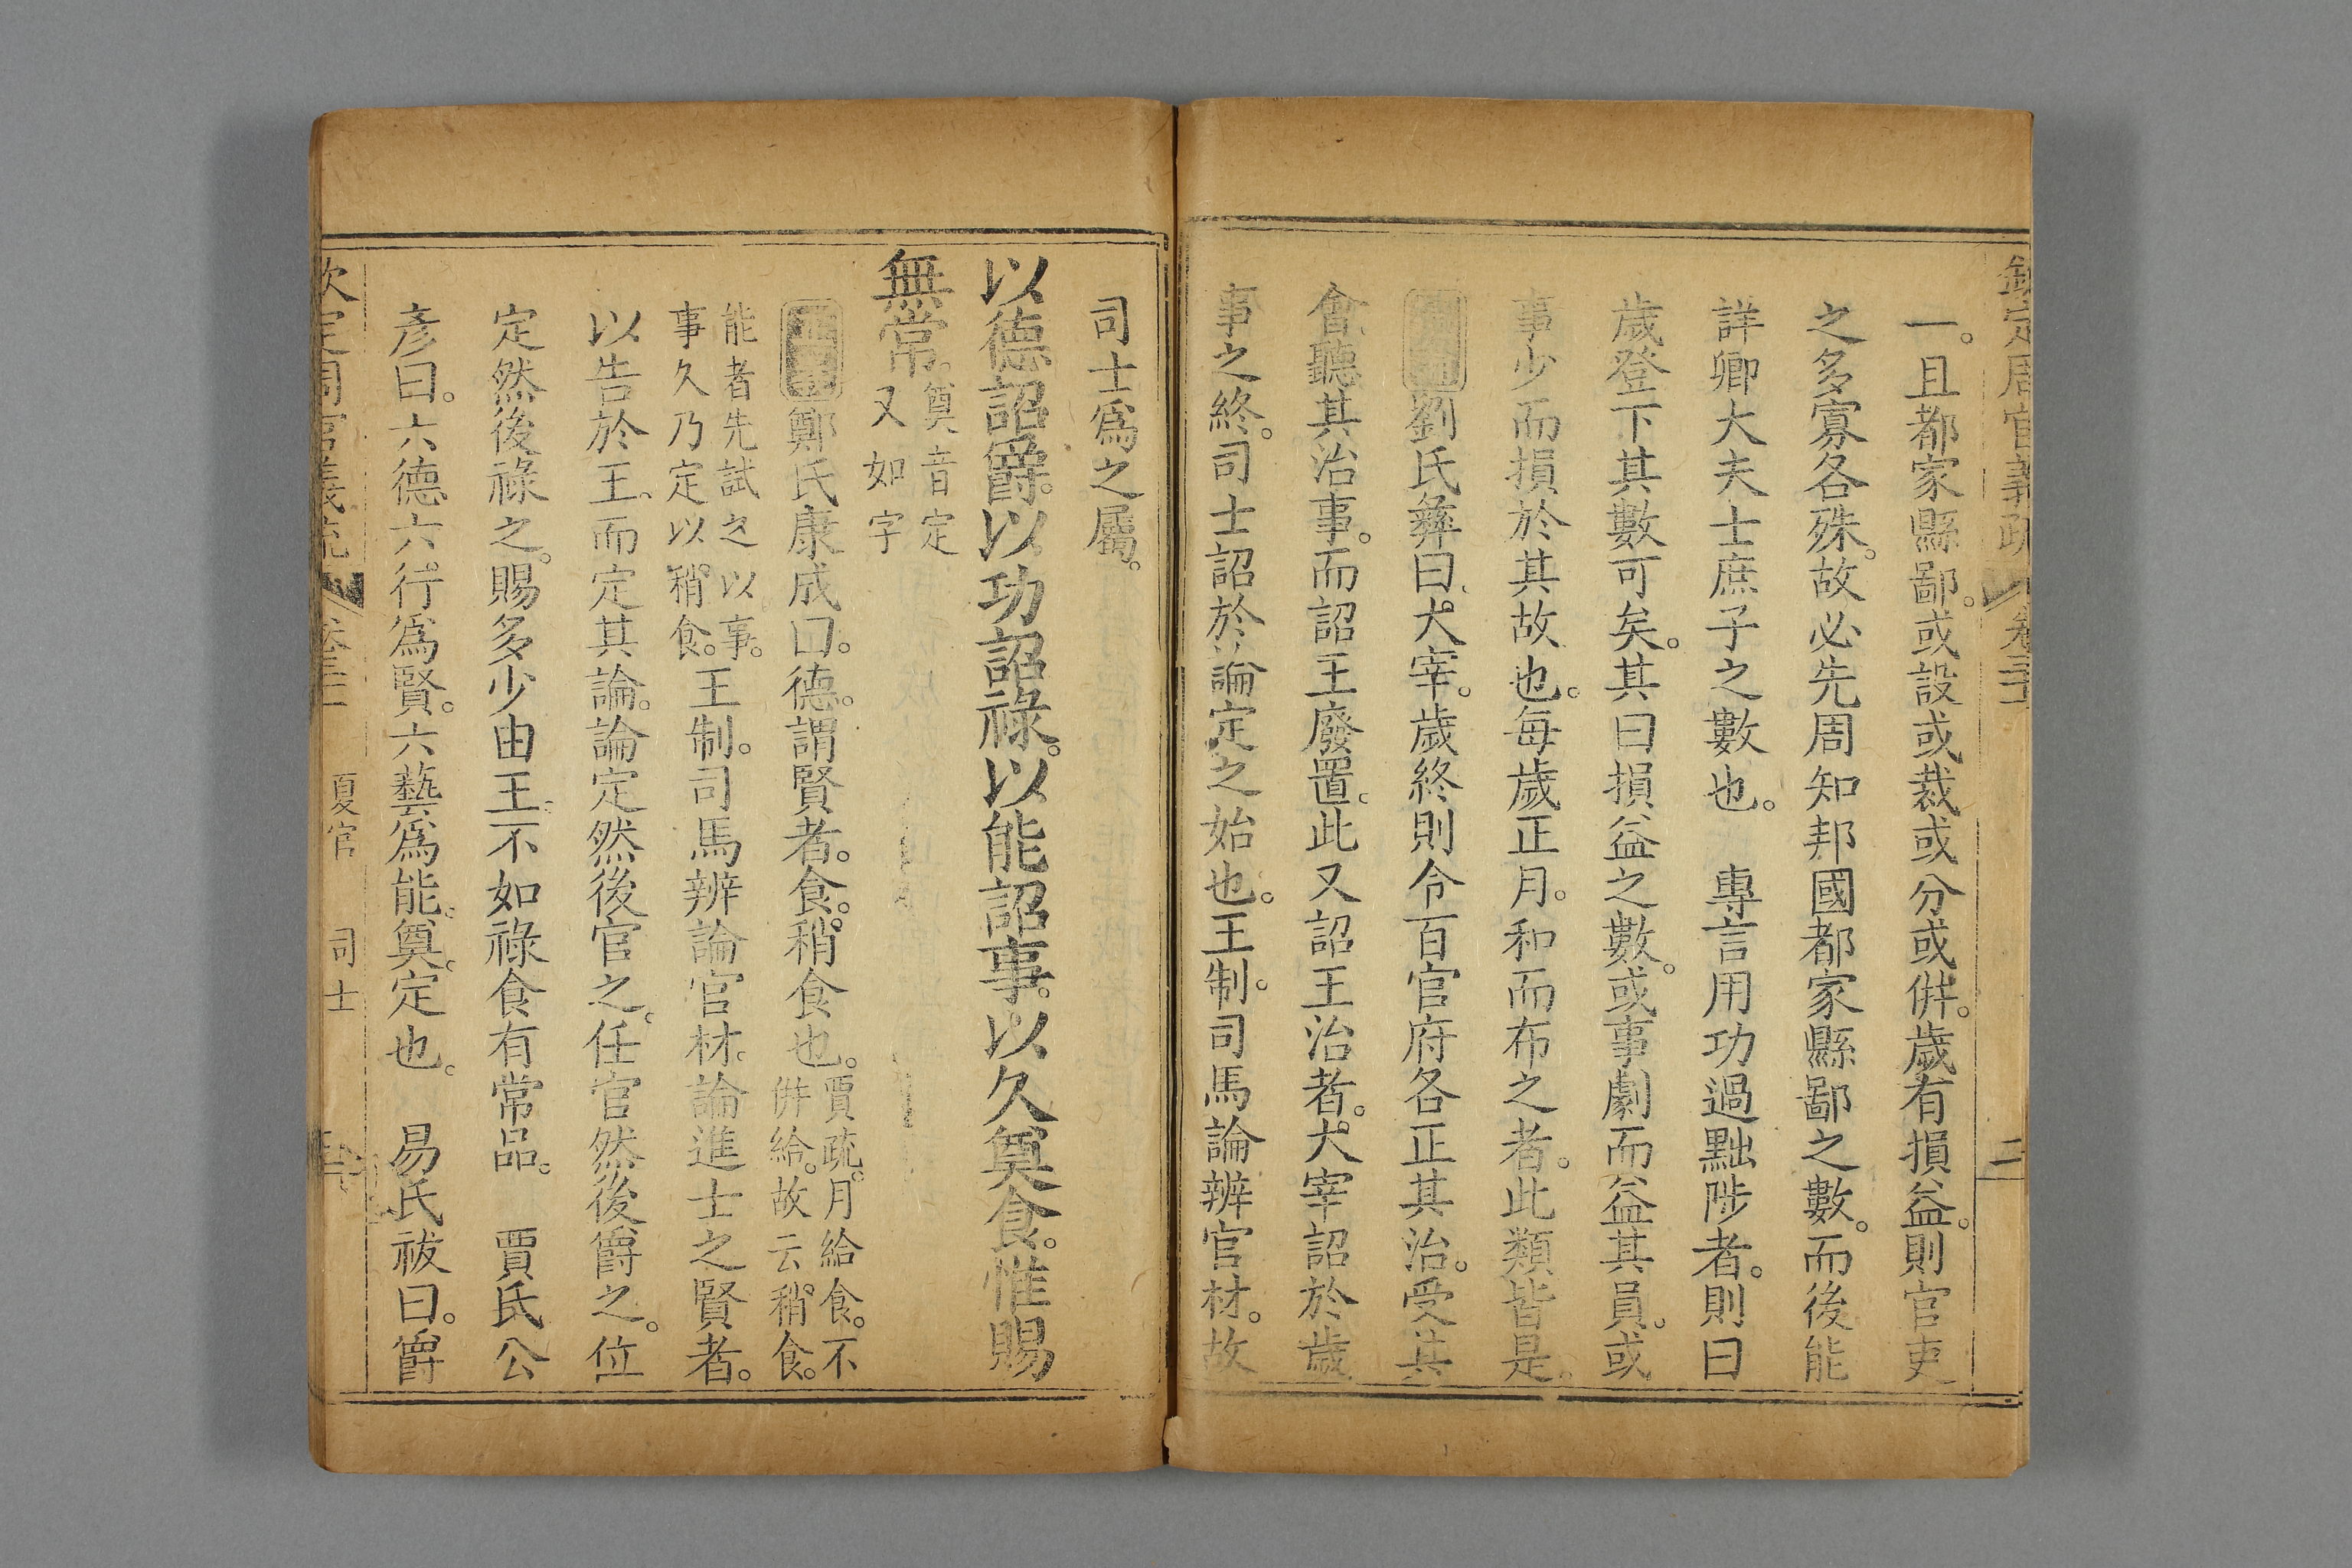 欽定周官義疏 卷三十 二
一。且都家縣鄙。或設或裁或分或併。歲有損益。則官吏
之多寡各殊。故必先周知邦國都家縣鄙之數。而後能
詳卿大夫士庶子之數也。 專言用功過黜陟者。則曰
歲登下其數可矣。其曰損益之數。或事劇而益其員。或
事少而損於其故也。每歲正月。和而布之者。此類皆是。
劉氏彝曰。大宰。歲終則令百官府各正其治。受其
會。聽其治事。而詔王廢置。此又詔王治者。大宰詔於歲
事之終。司士詔於論定之始也。王制。司馬論辨官材。故
司士爲之屬。
以德詔爵。以功詔祿。以能詔事。以久奠食。惟賜
無常。奠音定又如字
鄭氏康成曰。德。謂賢者。食。稍食也。賈疏。月給食。不併給。故云稍食。
能者先試之以事。事久乃定以稍食。王制。司馬辨論官材。論進士之賢者。
以告於王。而定其論。論定然後官之。任官然後爵之。位
定然後祿之。賜多少由王。不如祿食有常品。 賈氏公
彥曰。六德六行爲賢。六藝爲能。奠。定也。 易氏祓曰。爵
欽定周官義疏 卷三十 夏官 司士